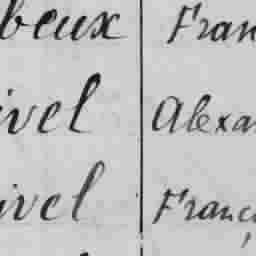 beux Fran
ivel Alexa
ivel Franç